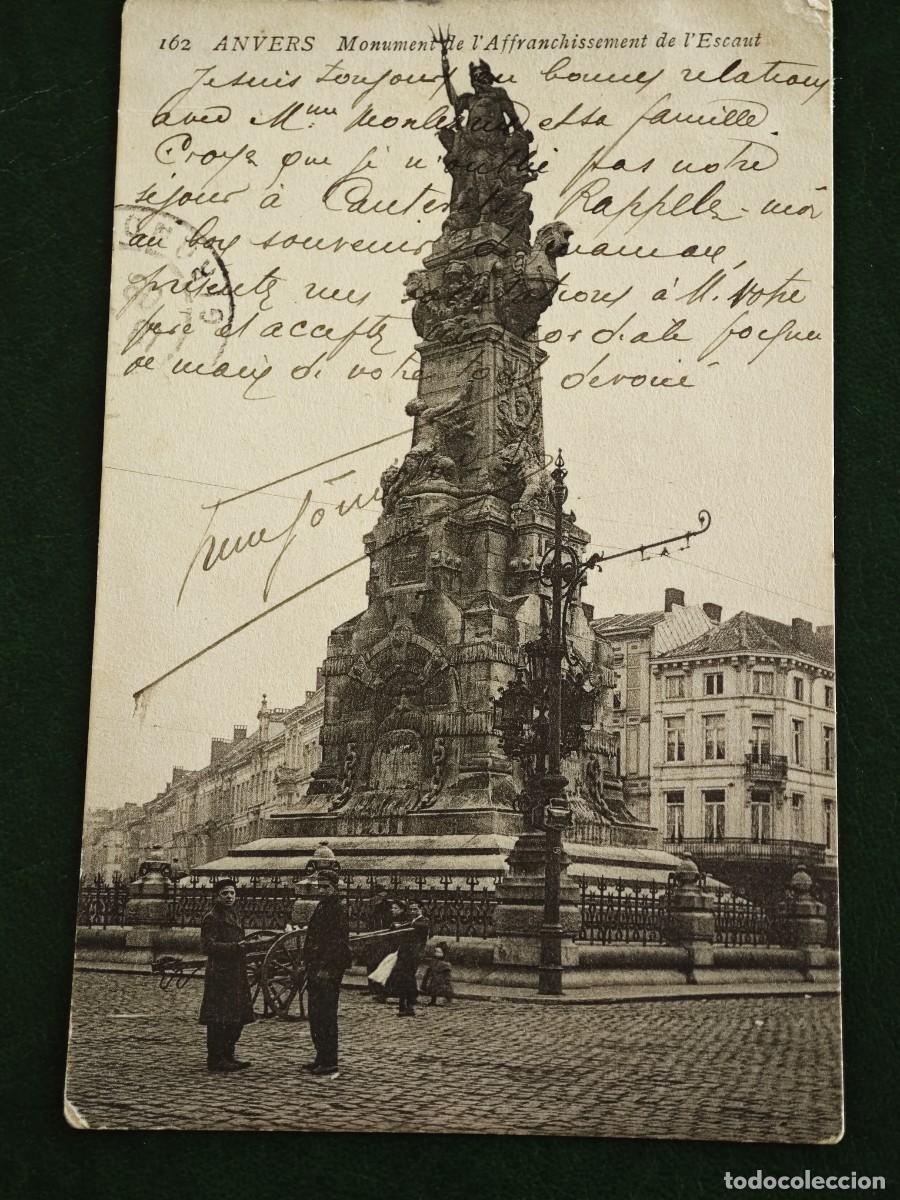 162 ANVERS Monument de l'Affranchissement de l'Escaut
Je suis toujours en bonnes relations
avec Mme et sa famille
Croyez que je n'oublie pas notre
séjour à Rappelez-moi
au bon souvenir de maman,
présentez mes salutations à M. votre
père et acceptez une cordiale poignée
de main de votre tout dévoué
todocoleccion